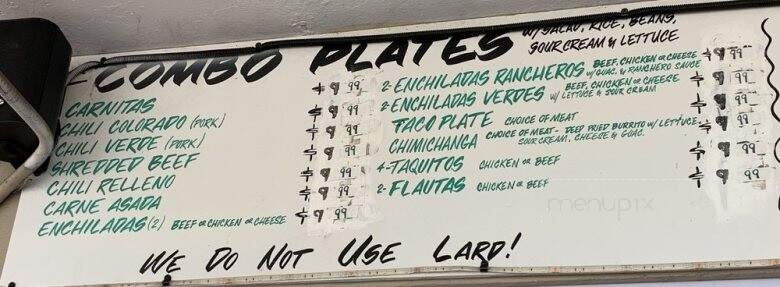 COMBO PLATES W/SALAD, RICE, BEANS,
SOUR CREAM & LETTUCE
CARNITAS $9.99
CHILI COLORADO (PORK) $9.99
CHILI VERDE (PORK) $9.99
SHREDDED BEEF $9.99
CHILI RELLENO $9.99
CARNE ASADA $9.99
ENCHILADAS (2) BEEF OR CHICKEN OR CHEESE $9.99
2-ENCHILADAS RANCHEROS BEEF, CHICKEN OR CHEESE $9.99
W/GUAC. & RANCHERO SAUCE
2-ENCHILADAS VERDES BEEF, CHICKEN OR CHEESE $9.99
W/ LETTUCE & SOUR CREAM
TACO PLATE CHOICE OF MEAT $9.99
CHIMICHANGA CHOICE OF MEAT - DEEP FRIED BURRITO W/ LETTUCE- $9.99
SOUR CREAM, CHEESE & GUAC.
4-TAQUITOS CHICKEN OR BEEF $9.99
2-FLAUTAS CHICKEN OR BEEF $9.99
WE DO NOT USE LARD!
menupix